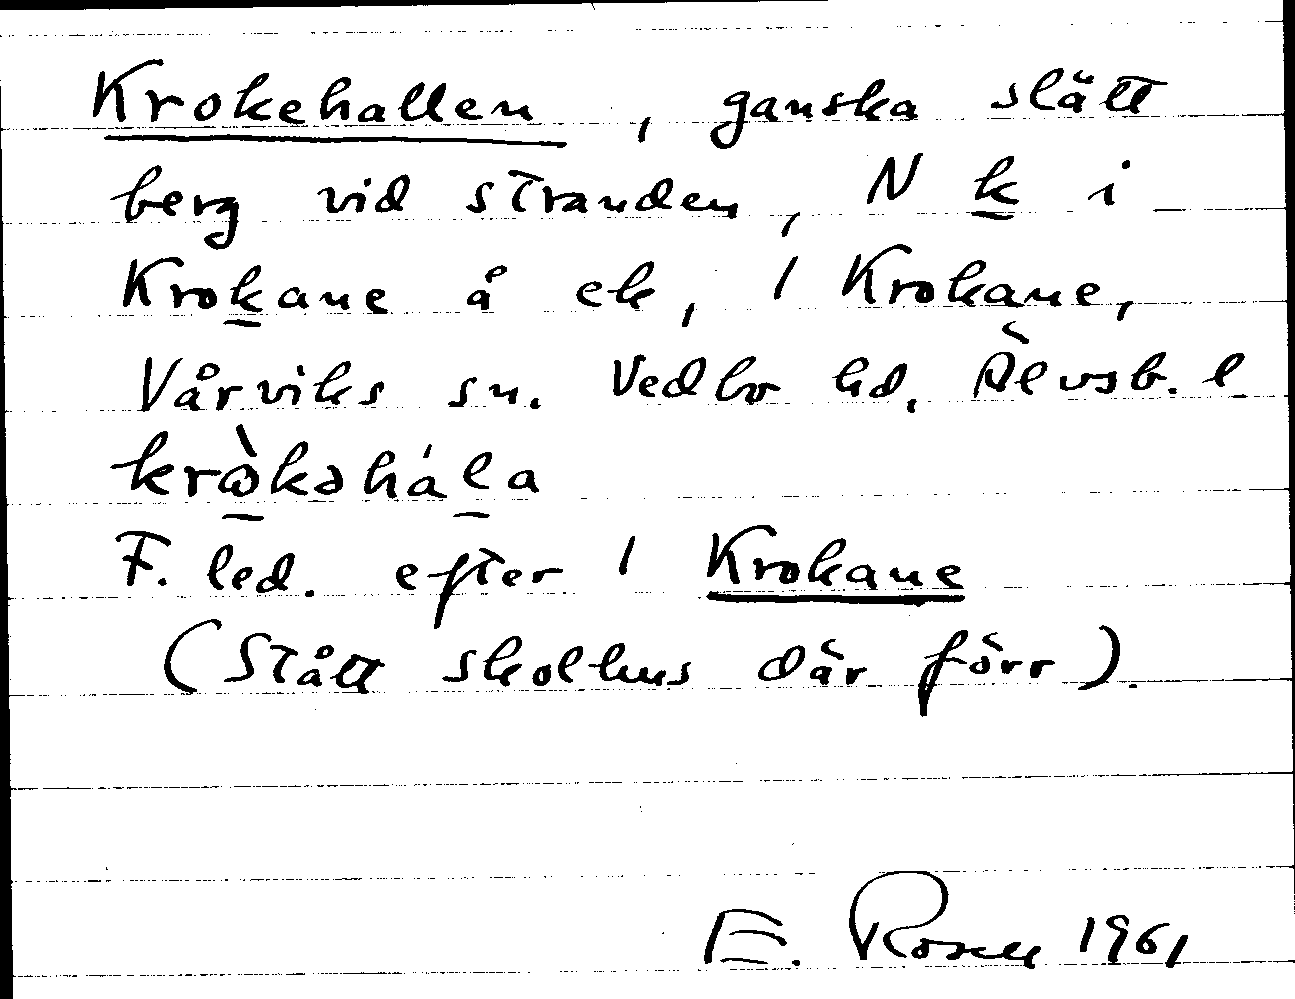 Krokehallen, ganska slätt
berg vid stranden, N k i
Krokane å ek, 1 Krokane,
Vårviks sn. Vedbo hd, Älvsb. l
krὼkəhála
F. led. efter 1 Krokane
(Stått skolhus där förr).
E. Rosell 1961